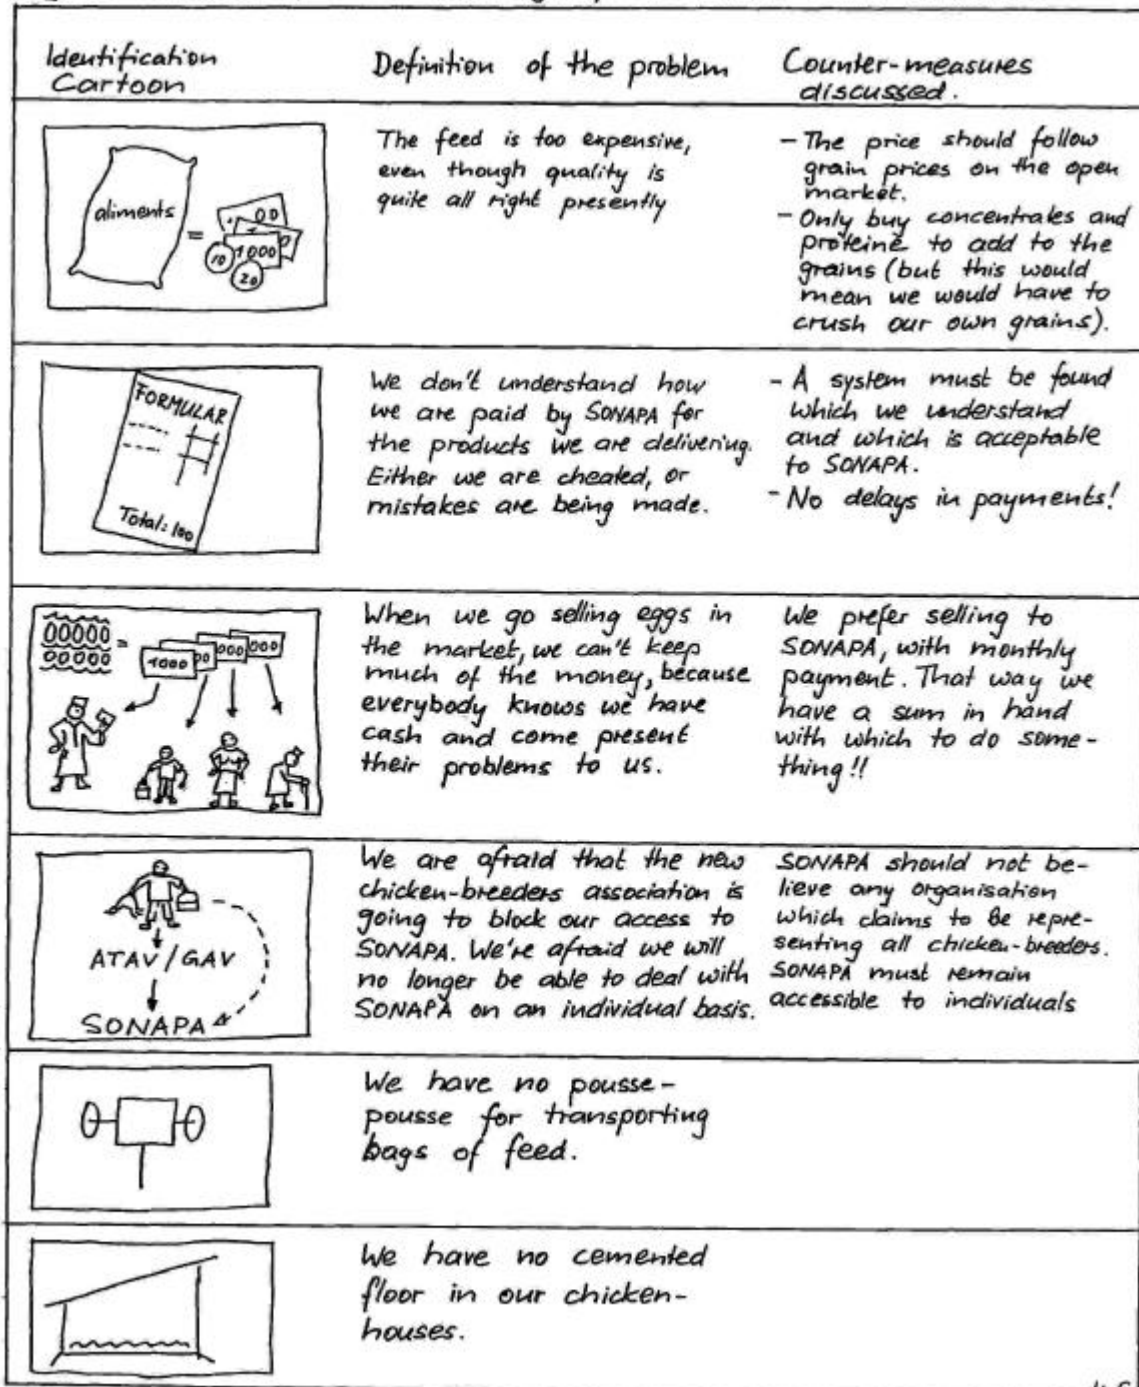 Identification
Cartoon
Definition of the problem
Counter-measures
discussed.
aliments
=
00
1000
10
20
The feed is too expensive,
even though quality is
quite all right presently
- The price should follow
grain prices on the open
market.
- Only buy concentrates and
proteine to add to the
grains (but this would
mean we would have to
crush our own grains).
FORMULAR
Total: 100
We don't understand how
we are paid by SONAPA for
the products we are delivering.
Either we are cheated, or
mistakes are being made.
- A system must be found
which we understand
and which is acceptable
to SONAPA.
- No delays in payments!
00000
00000
=
1000
00
000
000
When we go selling eggs in
the market, we can't keep
much of the money, because
everybody knows we have
cash and come present
their problems to us.
We prefer selling to
SONAPA, with monthly
payment. That way we
have a sum in hand
with which to do some-
thing!!
ATAV/GAV
SONAPA
We are afraid that the new
chicken-breeders association is
going to block our access to
SONAPA. We're afraid we will
no longer be able to deal with
SONAPA on an individual basis.
SONAPA should not be-
lieve any organisation
which claims to be repre-
senting all chicken-breeders.
SONAPA must remain
accessible to individuals
We have no pousse-
pousse for transporting
bags of feed.
We have no cemented
floor in our chicken-
houses.